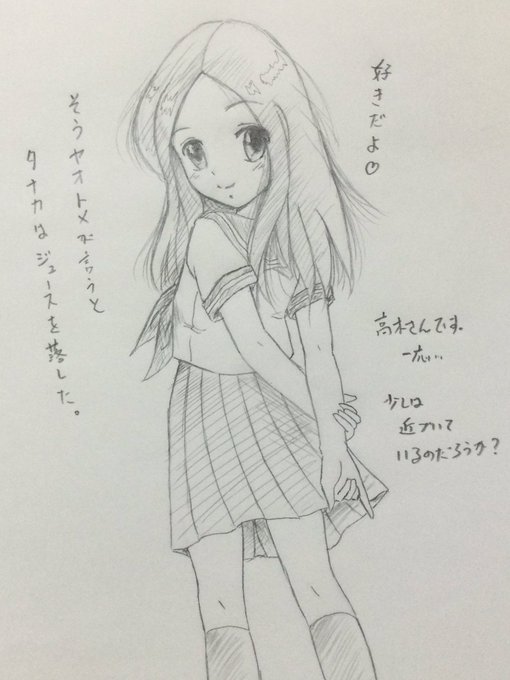 好きだよ♡
そうヤオトメが言うと
タナカはジュースを落した。
高木さんです。
一応…
少しは
近づいて
いるのだろうか?